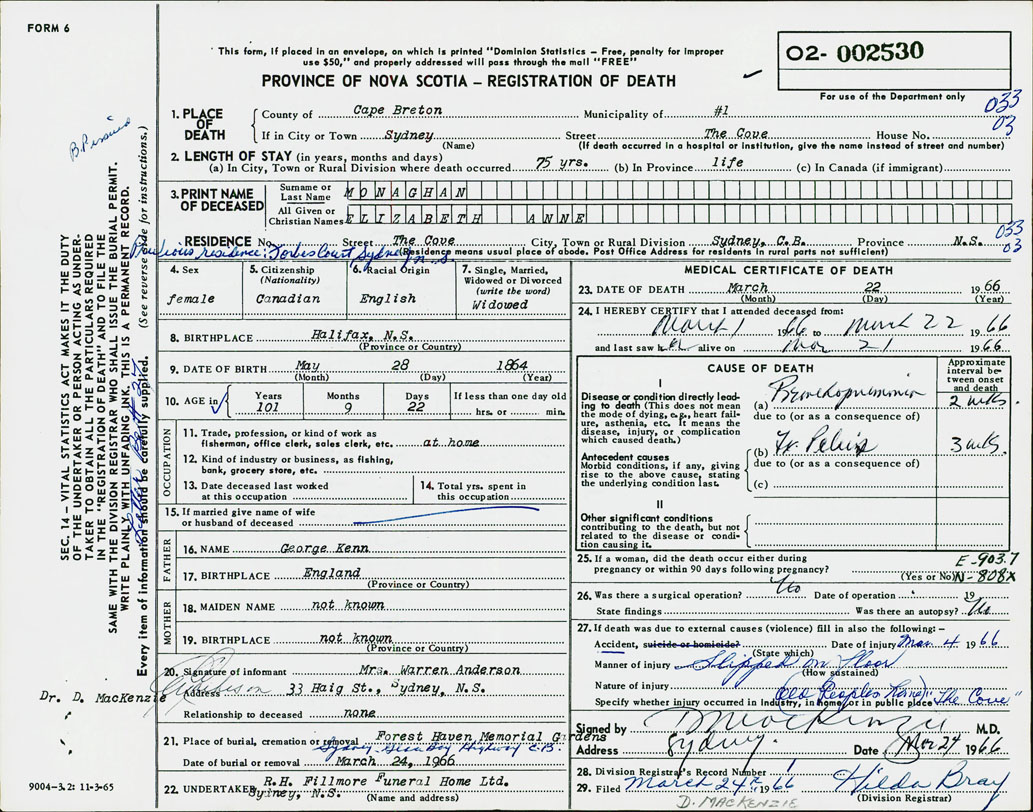 FORM 6
* This form, if placed in an envelope, on which is printed "Dominion Statistics – Free, penalty for improper
use $50," and properly addressed will pass through the mail "FREE"
PROVINCE OF NOVA SCOTIA – REGISTRATION OF DEATH
O2- 002530
For use of the Department only
033
03
1. PLACE OF DEATH
County of Cape Breton Municipality of #1
If in City or Town Sydney Street The Cove House No.
(Name) (If death occurred in a hospital or institution, give the name instead of street and number)
2. LENGTH OF STAY (in years, months and days)
(a) In City, Town or Rural Division where death occurred 75 yrs. (b) In Province life (c) In Canada (if immigrant)
3. PRINT NAME OF DECEASED
Surname or Last Name MONAGHAN
All Given or Christian Names ELIZABETH ANNE
033
03
RESIDENCE No. Street The Cove City, Town or Rural Division Sydney, C.B. Province N.S.
(Residence means usual place of abode. Post Office Address for residents in rural parts not sufficient)
4. Sex
female
5. Citizenship
(Nationality)
Canadian
6. Racial Origin
English
7. Single, Married,
Widowed or Divorced
(write the word)
Widowed
8. BIRTHPLACE Halifax, N.S.
(Province or Country)
9. DATE OF BIRTH May 28 1864
(Month) (Day) (Year)
10. AGE in
Years Months Days If less than one day old
101 9 22 hrs. or min.
OCCUPATION
11. Trade, profession, or kind of work as
fisherman, office clerk, sales clerk, etc. at home
12. Kind of industry or business, as fishing,
bank, grocery store, etc.
13. Date deceased last worked
at this occupation
14. Total yrs. spent in
this occupation
15. If married give name of wife
or husband of deceased
FATHER
16. NAME George Kenn
17. BIRTHPLACE England
(Province or Country)
MOTHER
18. MAIDEN NAME not known
19. BIRTHPLACE not known
(Province or Country)
20. Signature of informant Mrs. Warren Anderson
Address 33 Haig St., Sydney, N.S.
Relationship to deceased none
21. Place of burial, cremation or removal Forest Haven Memorial Gardens
Date of burial or removal March 24, 1966
22. UNDERTAKER R.H. Fillmore Funeral Home Ltd.
Sydney, N.S. (Name and address)
MEDICAL CERTIFICATE OF DEATH
23. DATE OF DEATH March 22 1966
(Month) (Day) (Year)
24. I HEREBY CERTIFY that I attended deceased from:
March 1 1966 to March 22 1966
and last saw her alive on Mar 21 1966
CAUSE OF DEATH
Approximate
interval be-
tween onset
and death
I
Disease or condition directly lead-
ing to death (This does not mean
the mode of dying, e.g., heart fail-
ure, asthenia, etc. It means the
disease, injury, or complication
which caused death.)
(a) Bronchopneumonia 2 wks.
due to (or as a consequence of)
Antecedent causes
Morbid conditions, if any, giving
rise to the above cause, stating
the underlying condition last.
(b) Fr. Pelvis 3 wks.
due to (or as a consequence of)
(c)
II
Other significant conditions
contributing to the death, but not
related to the disease or condi-
tion causing it.
25. If a woman, did the death occur either during
pregnancy or within 90 days following pregnancy?
(Yes or No)
E-903.7
N-808X
26. Was there a surgical operation? No Date of operation 19
State findings Was there an autopsy? No
27. If death was due to external causes (violence) fill in also the following: –
Accident, suicide or homicide? Date of injury Mar 4 1966
(State which)
Manner of injury Slipped on floor
(How sustained)
Nature of injury
Old Peoples Home "The Cove"
Specify whether injury occurred in industry, in home, or in public place
Signed by D MacKenzie M.D.
Address Sydney. Date Mar 24 1966
28. Division Registrar's Record Number
29. Filed March 24th 1966 Hilda Bray
(Division Registrar)
D. MACKENZIE
SEC. 14 – VITAL STATISTICS ACT MAKES IT THE DUTY
OF THE UNDERTAKER OR PERSON ACTING AS UNDER-
TAKER TO OBTAIN ALL THE PARTICULARS REQUIRED
IN THE "REGISTRATION OF DEATH" AND TO FILE THE
SAME WITH THE DIVISION REGISTRAR WHO SHALL ISSUE THE BURIAL PERMIT.
WRITE PLAINLY WITH UNFADING INK. THIS IS A PERMANENT RECORD.
Every item of information should be carefully supplied. (See reverse side for instructions.)
Dr. D. MacKenzie
9004-3.2: 11-3-65